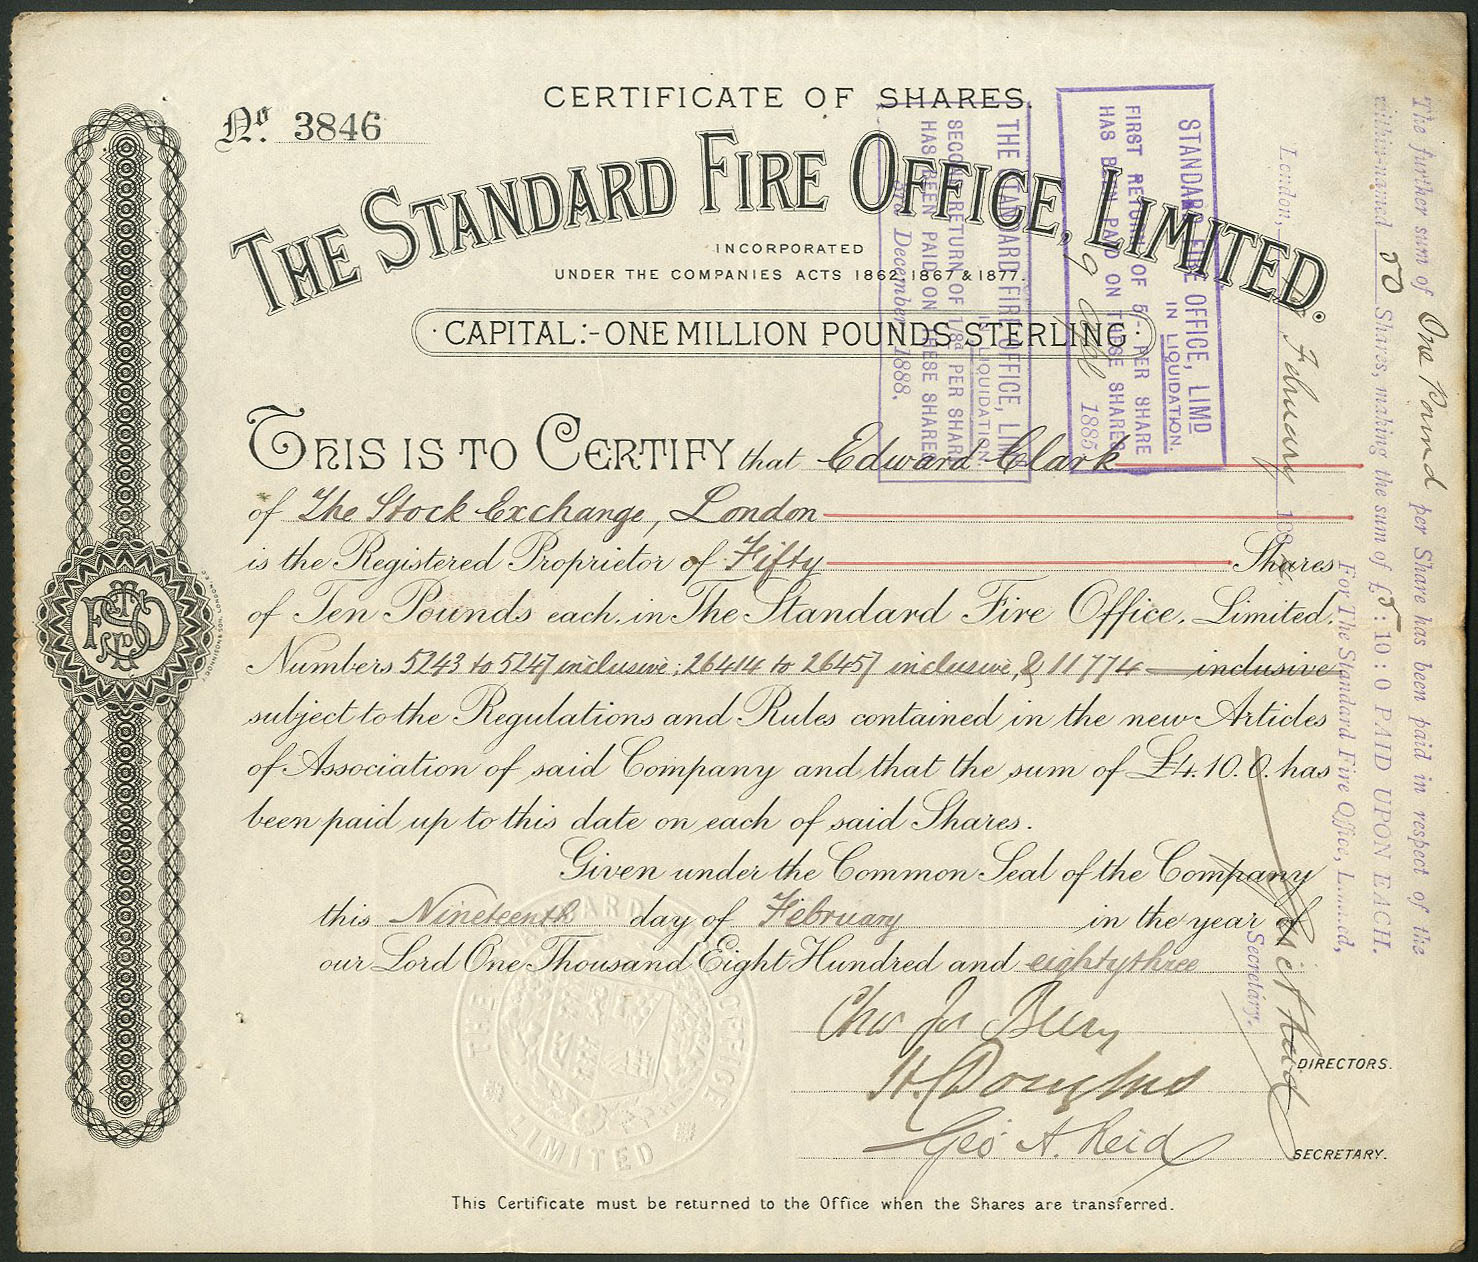 CERTIFICATE OF SHARES.
No. 3846
THE STANDARD FIRE OFFICE, LIMITED.
INCORPORATED
UNDER THE COMPANIES ACTS 1862, 1867 & 1877.
CAPITAL:-ONE MILLION POUNDS STERLING
THIS IS TO CERTIFY that Edward Clark
of The Stock Exchange, London
is the Registered Proprietor of Fifty Shares
of Ten Pounds each, in The Standard Fire Office, Limited.
Numbers 5243 to 5247 inclusive; 26414 to 26457 inclusive, & 11774 inclusive
subject to the Regulations and Rules contained in the new Articles
of Association of said Company and that the sum of £4.10.0. has
been paid up to this date on each of said Shares.
Given under the Common Seal of the Company
this Nineteenth day of February in the year of
our Lord One Thousand Eight Hundred and eightythree
H. Douglas
DIRECTORS.
Geo A. Reid
SECRETARY.
This Certificate must be returned to the Office when the Shares are transferred.
THE STANDARD OFFICE LIMITED
THE STANDARD FIRE OFFICE, LIM
IN LIQUIDATION.
SECOND RETURN OF 1/8d PER SHARE
HAS BEEN PAID ON THESE SHARES
December 1888.
STANDARD FIRE OFFICE, LIMD
IN LIQUIDATION.
FIRST RETURN OF 5/- PER SHARE
HAS BEEN PAID ON THOSE SHARES
The further sum of One Pound per Share has been paid in respect of the
within-named 50 Shares, making the sum of £5:10:0 PAID UPON EACH.
For The Standard Fire Office, Limited,
London, February
Secretary.